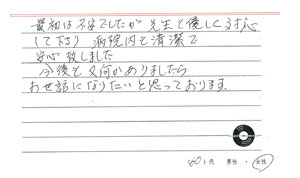 最初は不安でしたが 先生も優しく対応
して下さり 病院内も清潔で
安心致しました
今後も又何かありましたら
お世話になりたいと思っております。
(60)代 男性 ・ 女性